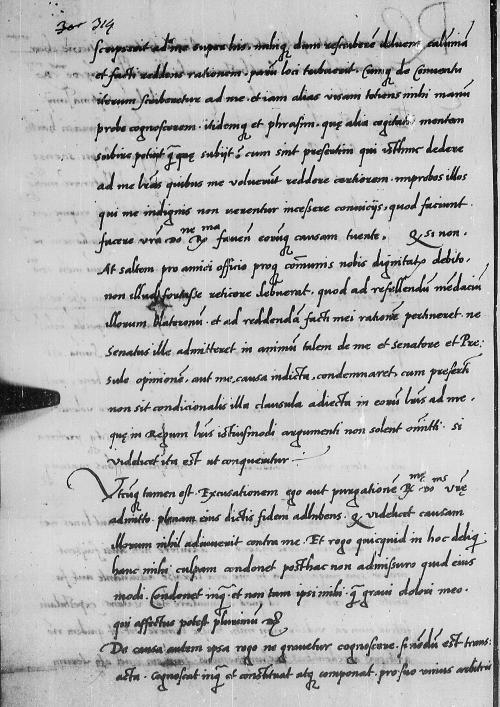 scripserit ad me super his. nihilq₃ dum rescuberet diluens calumniā
et facti reddens rationem. parū loci tribuerit. Cumq₃ de Conuentu
iterum scriberetur ad me. et iam alias visam toties mihi manū
probe cognoscerem. itidemq₃ et phrasim. quę alia cogitatio mentem
subire potuit q̄ quę subijt? cum sint presertim qui isthinc dedere
ad me lrās quibus me voluerūt reddere certiorem. improbos illos
qui me indignis non verentur incessere conuicijs. quod faciunt.
facere vrā Do.ne R.ma fauen eorūq₃ causam tuente. Et si non.
At saltem pro amici officio proq₃ comunis nobis dignitatis debito.
non illud fortasse reticere debuerat. quod ad refellendū mendaciū
illorum blateronū. et ad reddendā facti mei rationē pertineret. ne
Senatus ille admitteret in animū talem de me et Senatore et Pre:
sule opinionē. aut me causa indicta condemnaret. cum presertī
non sit condicionalis illa clausula adiecta in eorū lrīs ad me.
quę in Regum lrīs istiusmodi argumenti non solent omitti. si
videlicet ita est ut conqueruntur.
Vtcūq₃ tamen est. Excusationem ego aut purgationē R.me Do.nis vrę
admitto. plenam eius dictis fidem adhibens. Et videlicet causam
illorum nihil adiuuerit contra me. Et rogo quicquid in hoc deliq
hanc mihi culpam condonet posthac non admissuro quid eius
modi. Condonet inq̄ et non tam ipsi mihi. q̄ graui dolori meo.
qui affectus potest plurimū
De causa autem ipsa rogo ne grauetur cognoscere. si nōdū est trans:
acta. Cognoscat inq̄ et constituat atq₃ componat. pro suo unius arbitrio